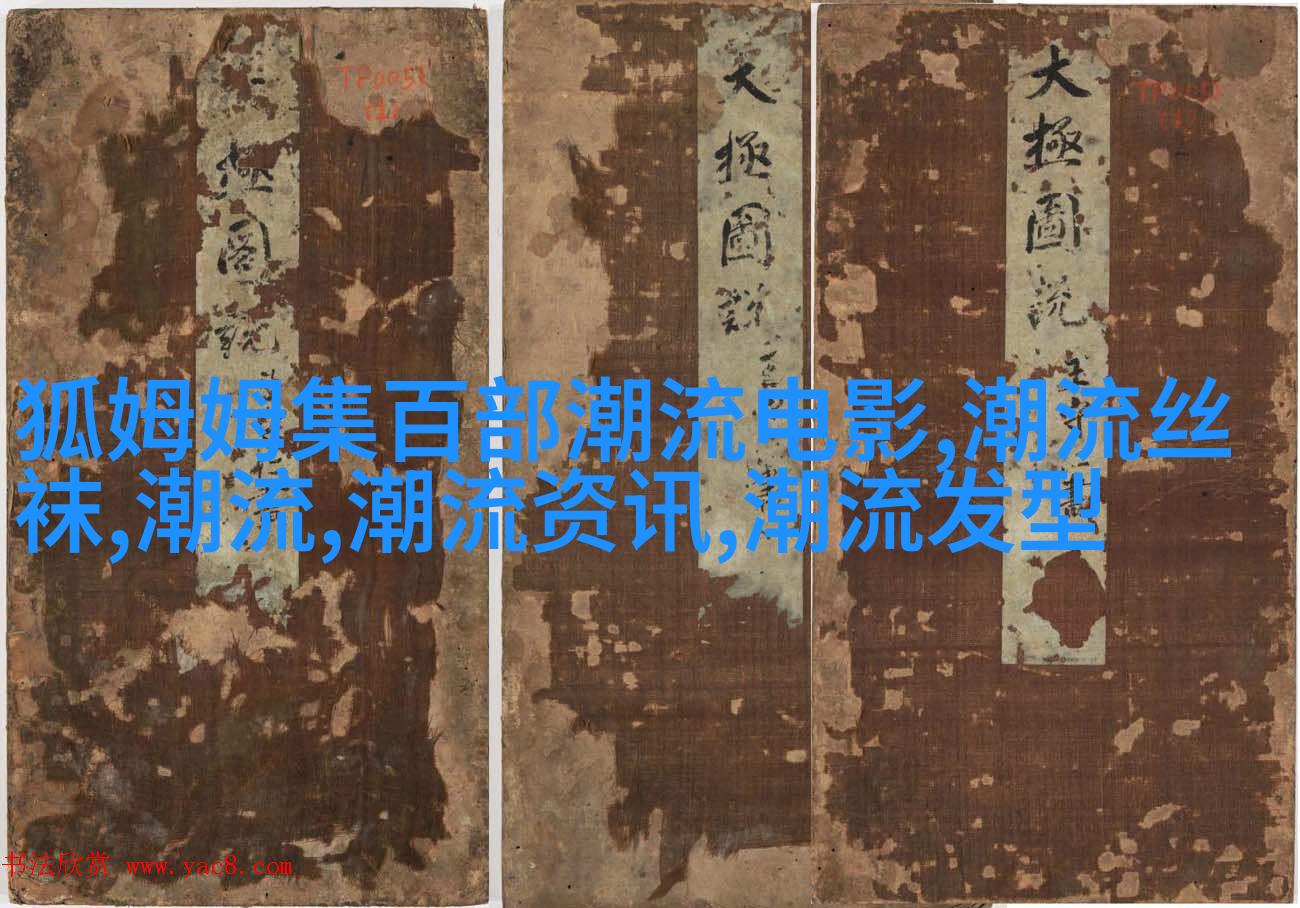 TP0051
(1)
極圖說
大極圖說
大極圖說
狐姆姆集百部潮流电影,潮流丝
袜,潮流,潮流资讯,潮流发型
书法欣赏 www.yac8.com